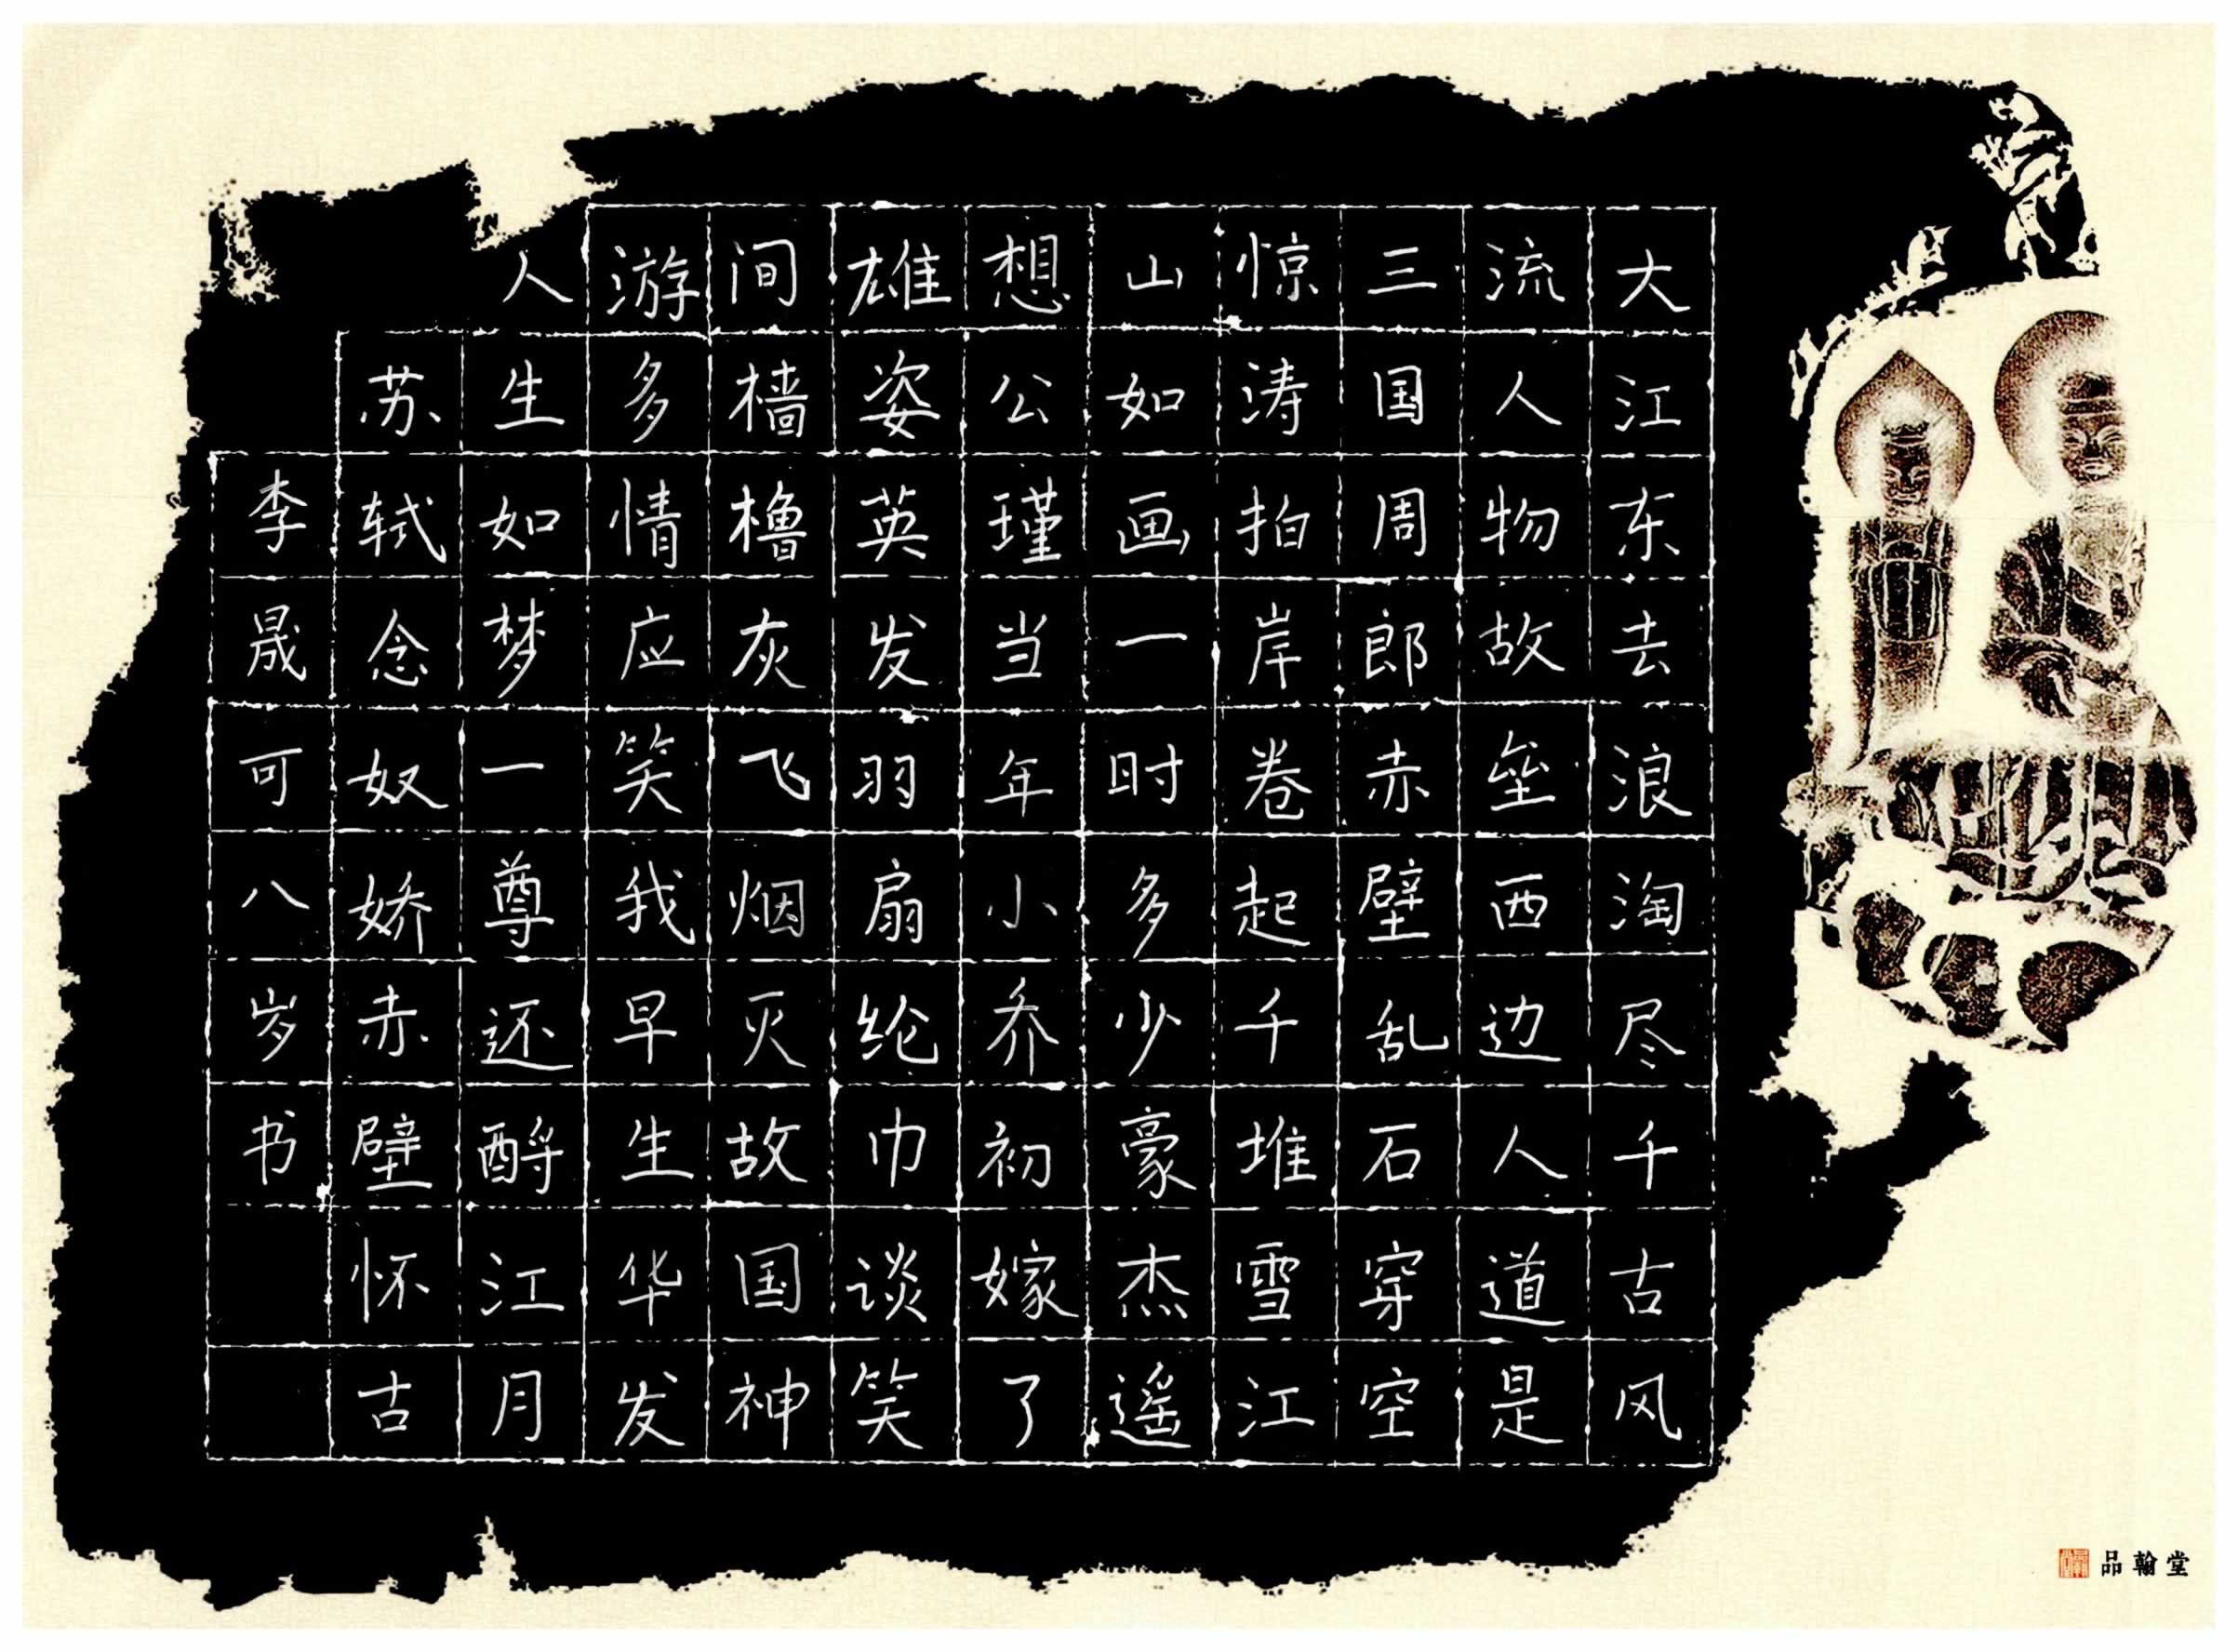 大江东去浪淘尽千古风
流人物故垒西边人道是
三国周郎赤壁乱石穿空
惊涛拍岸卷起千堆雪江
山如画一时多少豪杰遥
想公瑾当年小乔初嫁了
雄姿英发羽扇纶巾谈笑
间樯橹灰飞烟灭故国神
游多情应笑我早生华发
人生如梦一尊还酹江月
苏轼念奴娇赤壁怀古
李晟可八岁书
品翰堂